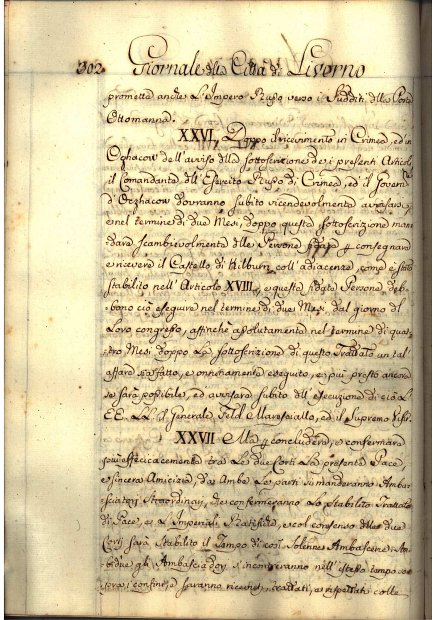 302. Giornale della Città di Livorno
prometta anche L'Impero Russo verso i Sudditi della Porta
Ottomanna.
XXVI. Doppo il ricevimento in Crimea, ed in
Oghacow dell'avviso della sottoscrizione dei presenti Articoli
il Comandante dell'Esercito Russo di Crimea, ed il Govern
d'Oczhacow dovranno subito vicendevolmente avvisarsi,
e nel termine di due Mesi, doppo questa sottoscrizione man
dare scambievolmente delle Persone fidate p consegnare
e ricevere il Castello di Kilburn coll'adiacenze, come è stato
stabilito nell'Articolo XVIII, e queste fidate Persone deb-
bono ciò eseguire nel termine di due Mesi dal giorno del
Loro congresso, affinchè assolutamente nel termine di quat
tro Mesi doppo La sottoscrizione di questo Trattato un tal
affare sia fatto, e onninamente eseguito, e più presto ancora
se sarà possibile, ed avvisare subito dell'esecuzione di ciò L
EE. LL. il Generale Feld Maresciallo, ed il Supremo Visir.
XXVII Ma p concludere, e confermare
più efficacemente tra Le due Corti La presente Pace,
e sincera Amicizia, da Ambe Le parti si manderanno Amba
sciatori Straordinarj, che confermeranno Lo stabilito Trattato
di Pace, e L'Imperiali Ratifiche, e col consenso delle due
Corti sarà stabilito il Tempo di così Solenne Ambascerie; Am
bidue gli Ambasciadori s'incontreranno nell'istesso tempo
sopra i confini, e saranno ricevuti, trattati, e rispettati colle